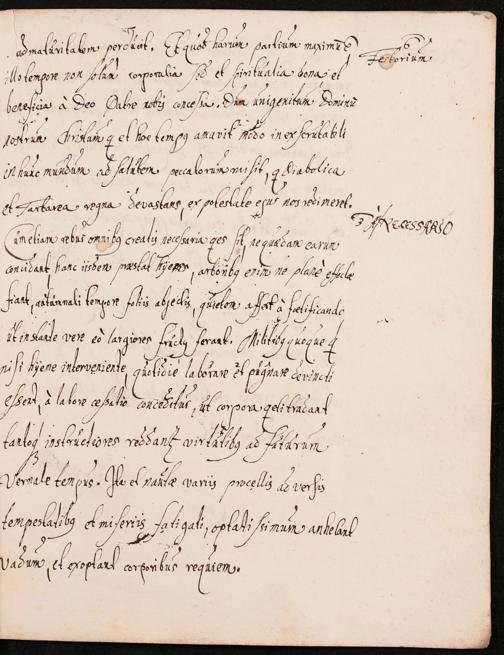 ad maturitatem perducit. Et quos harum partium maxime
6
Festorium
illo tempore non solum corporalia sed et spiritualia bona et
beneficia à Deo Patre nobis concessa. Dum unigenitum Dominū
nostrum Christum q et hoc tempꝯ amavit mōdo inexscrutabili
in hunc mundum ad salutem peccatorum misit, q diabolica
et Tartarea regna devastans, ex potestate eꝯ nos redimeret.
7 A NECESSARIO
Cum etiam rebꝯ omnibꝯ creatis necessaria qes sit, ne quædam earum
concidant hanc iisdem præstat hyems, arboribꝯ enim ne planè effœtæ
fiant, autumnali tempore foliis abjectis, quietem affert à fœtificando
ut instante vere eò largiores fructꝯ ferant. Militibꝯ quoque q
nisi hyeme interveniente, quotidiè laborare et pugnare devincti
essent, à labore cessatio conceditur, ut corpora q
tantoq instructiores reddant virtutibꝯ ad futurum
vernale tempus. Ita et nautæ variis procellis adversis
tempestatibꝯ et miseriis fatigati, optatissimum anhelant
vadum, et exoptant corporibus requiem.